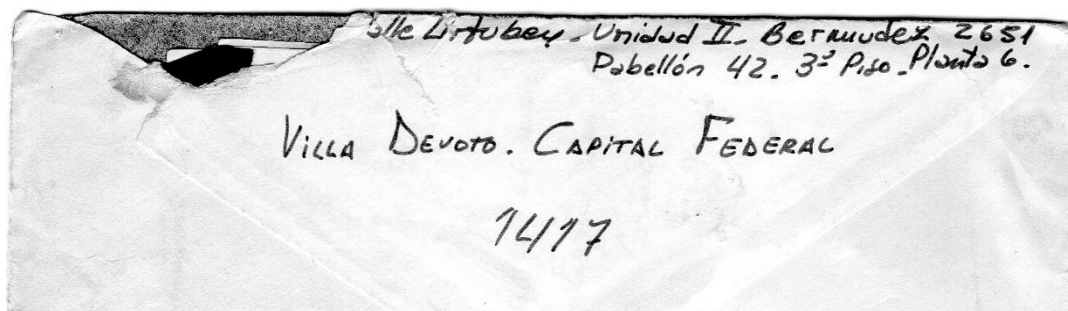 Urtubey - Unidad II - Bermudez 2651
Pabellón 42. 3º Piso. Planta 6.
VILLA DEVOTO. CAPITAL FEDERAL
1417